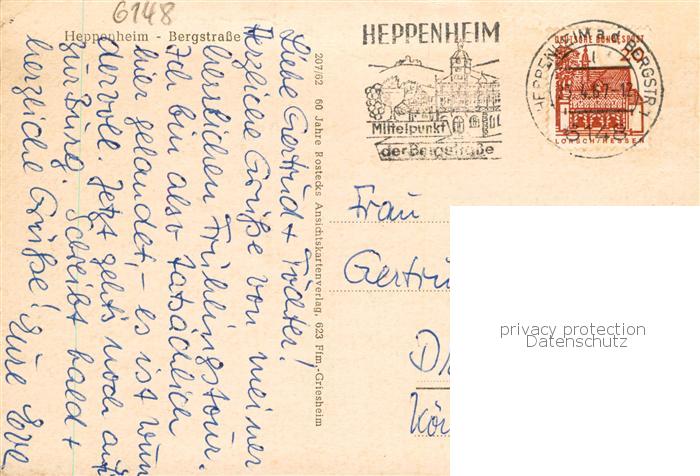 6148
Heppenheim - Bergstraße
Liebe Gertrud + Töchter!
Herzliche Grüße von meiner
herrlichen Frühlingstour.
Ich bin also tatsächlich
hier gelandet, - es ist wun
dervoll. Jetzt geht's noch auf
zur Burg. Schreibt bald +
herzliche Grüße! Eure Eva
207/62 60 Jahre Rostecks Ansichtskartenverlag, 623 Ffm.-Griesheim
HEPPENHEIM
Mittelpunkt
der Bergstraße
HEPPENHEIM a d BERGSTR
DEUTSCHE BUNDESPOST
20
LORSCH/HESSEN
Frau
Gertru
D
Kö
privacy protection
Datenschutz